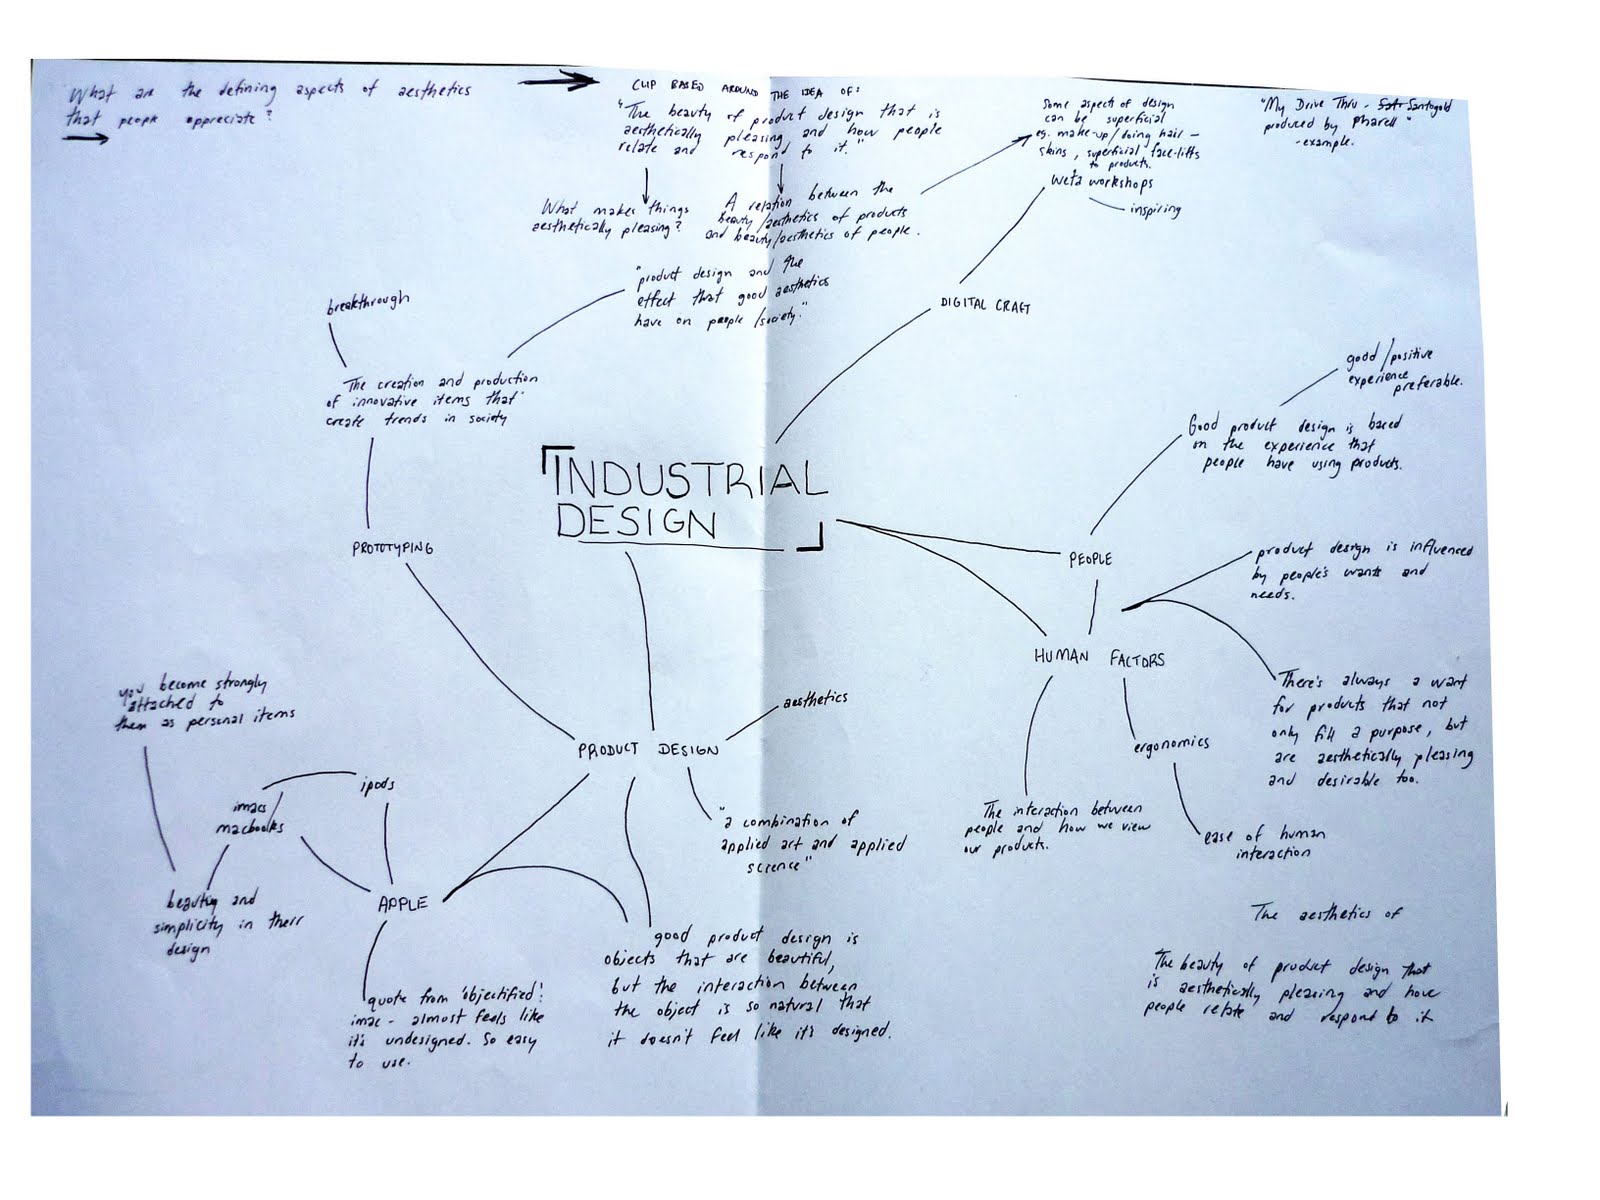 What are the defining aspects of aesthetics
that people appreciate?
CLIP BASED AROUND THE IDEA OF:
"The beauty of product design that is
aesthetically pleasing and how people
relate and respond to it."
What makes things
aesthetically pleasing?
A relation between the
beauty/aesthetics of products
and beauty/aesthetics of people.
Some aspects of design
can be superficial
eg. make-up/doing hair –
skins, superficial face-lifts
to products.
"My Drive Thru - Santogold
produced by Pharell"
- example.
weta workshops
inspiring
DIGITAL CRAFT
"product design and the
effect that good aesthetics
have on people/society."
breakthrough
The creation and production
of innovative items that
create trends in society
PROTOTYPING
INDUSTRIAL
DESIGN
good/positive
experience
preferable.
Good product design is based
on the experience that
people have using products.
PEOPLE
product design is influenced
by people's wants and
needs.
HUMAN FACTORS
There's always a want
for products that not
only fill a purpose, but
are aesthetically pleasing
and desirable too.
ergonomics
ease of human
interaction
The interaction between
people and how we view
our products.
PRODUCT DESIGN
aesthetics
"a combination of
applied art and applied
science"
you become strongly
attached to
them as personal items
ipods
imacs
macbooks
beauty and
simplicity in their
design
APPLE
quote from 'objectified':
imac - almost feels like
it's undesigned. So easy
to use.
good product design is
objects that are beautiful,
but the interaction between
the object is so natural that
it doesn't feel like it's designed.
The aesthetics of
The beauty of product design that
is aesthetically pleasing and how
people relate and respond to it